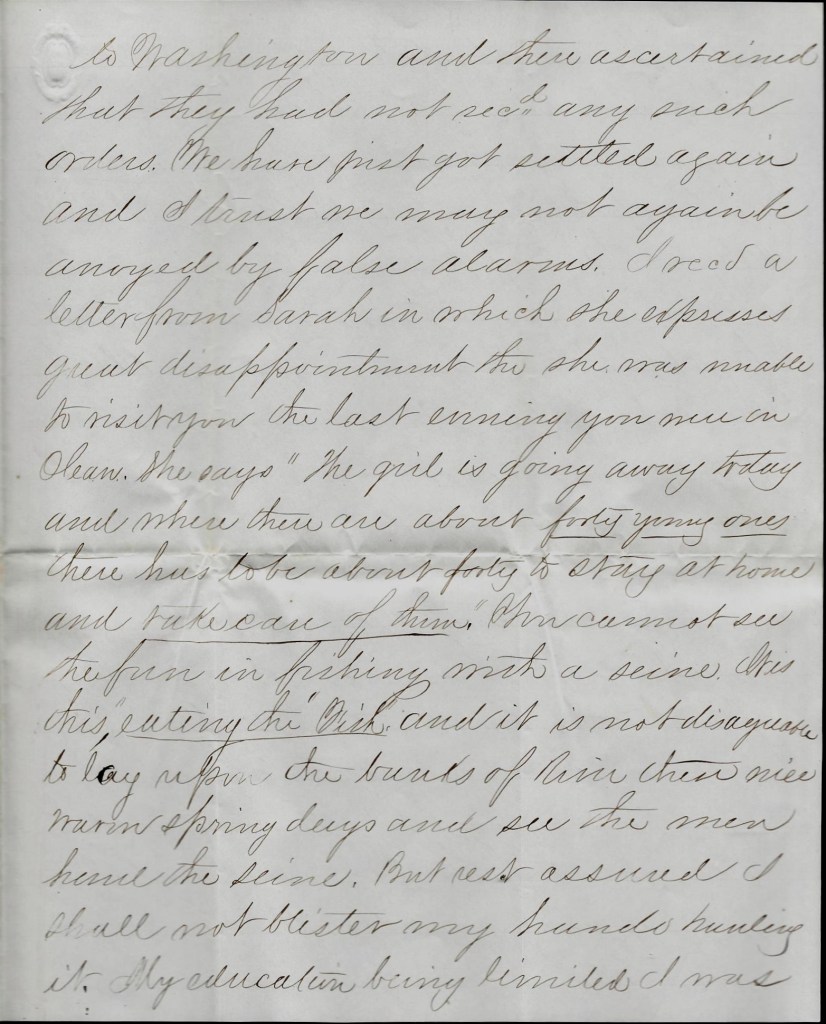 to Washington and there ascertained
that they had not recd any such
orders. We have just got settled again
and I trust we may not again be
anoyed by false alarms. I recd a
letter from Sarah in which she expresses
great disappointment the she was unable
to visit you the last evening you were in
Olean. She says "The girl is going away today
and where there are about forty young ones
there has to be about forty to stay at home
and take care of them." You cannot see
the fun in fishing with a seine. It is
this, "eating the Fish" and it is not disagreeable
to lay upon the banks of River these nice
warm spring days and see the men
haul the seine. But rest assured I
shall not blister my hands hauling
it. My education being limited I was